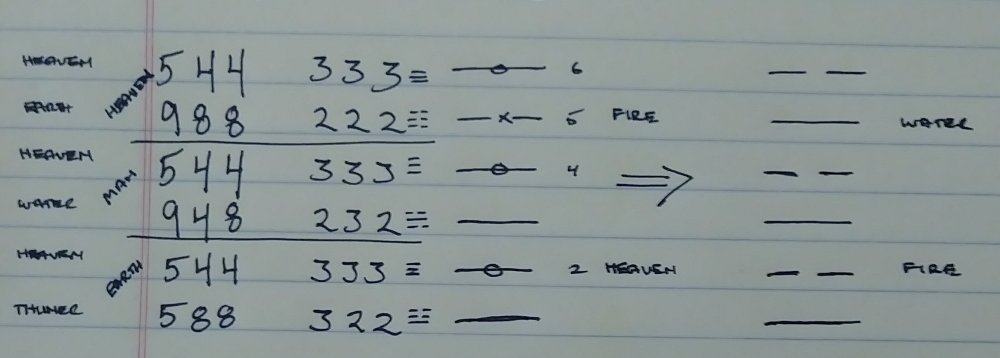 HEAVEN 544 333 ☰ 6
EARTH HEAVEN 988 222 ☷ 5 FIRE WATER
HEAVEN 544 333 ☰ 4
MAN
WATER 948 232 ☵
HEAVEN 544 333 ☰ 2 HEAVEN FIRE
EARTH
THUNER 588 322 ☳